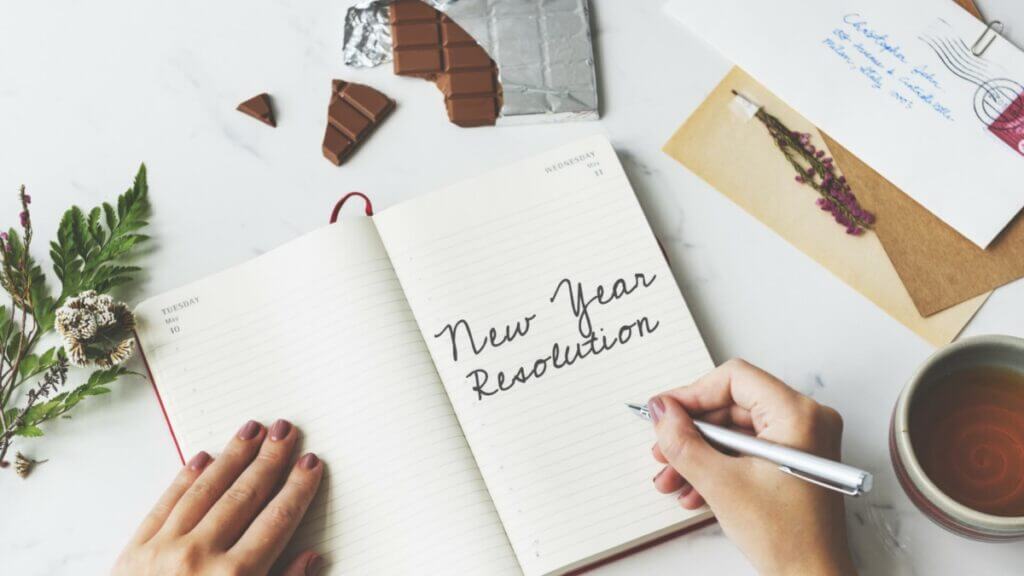 TUESDAY
May
10
WEDNESDAY
May
11
New Year
Resolution
Christopher John
Milan, Italy